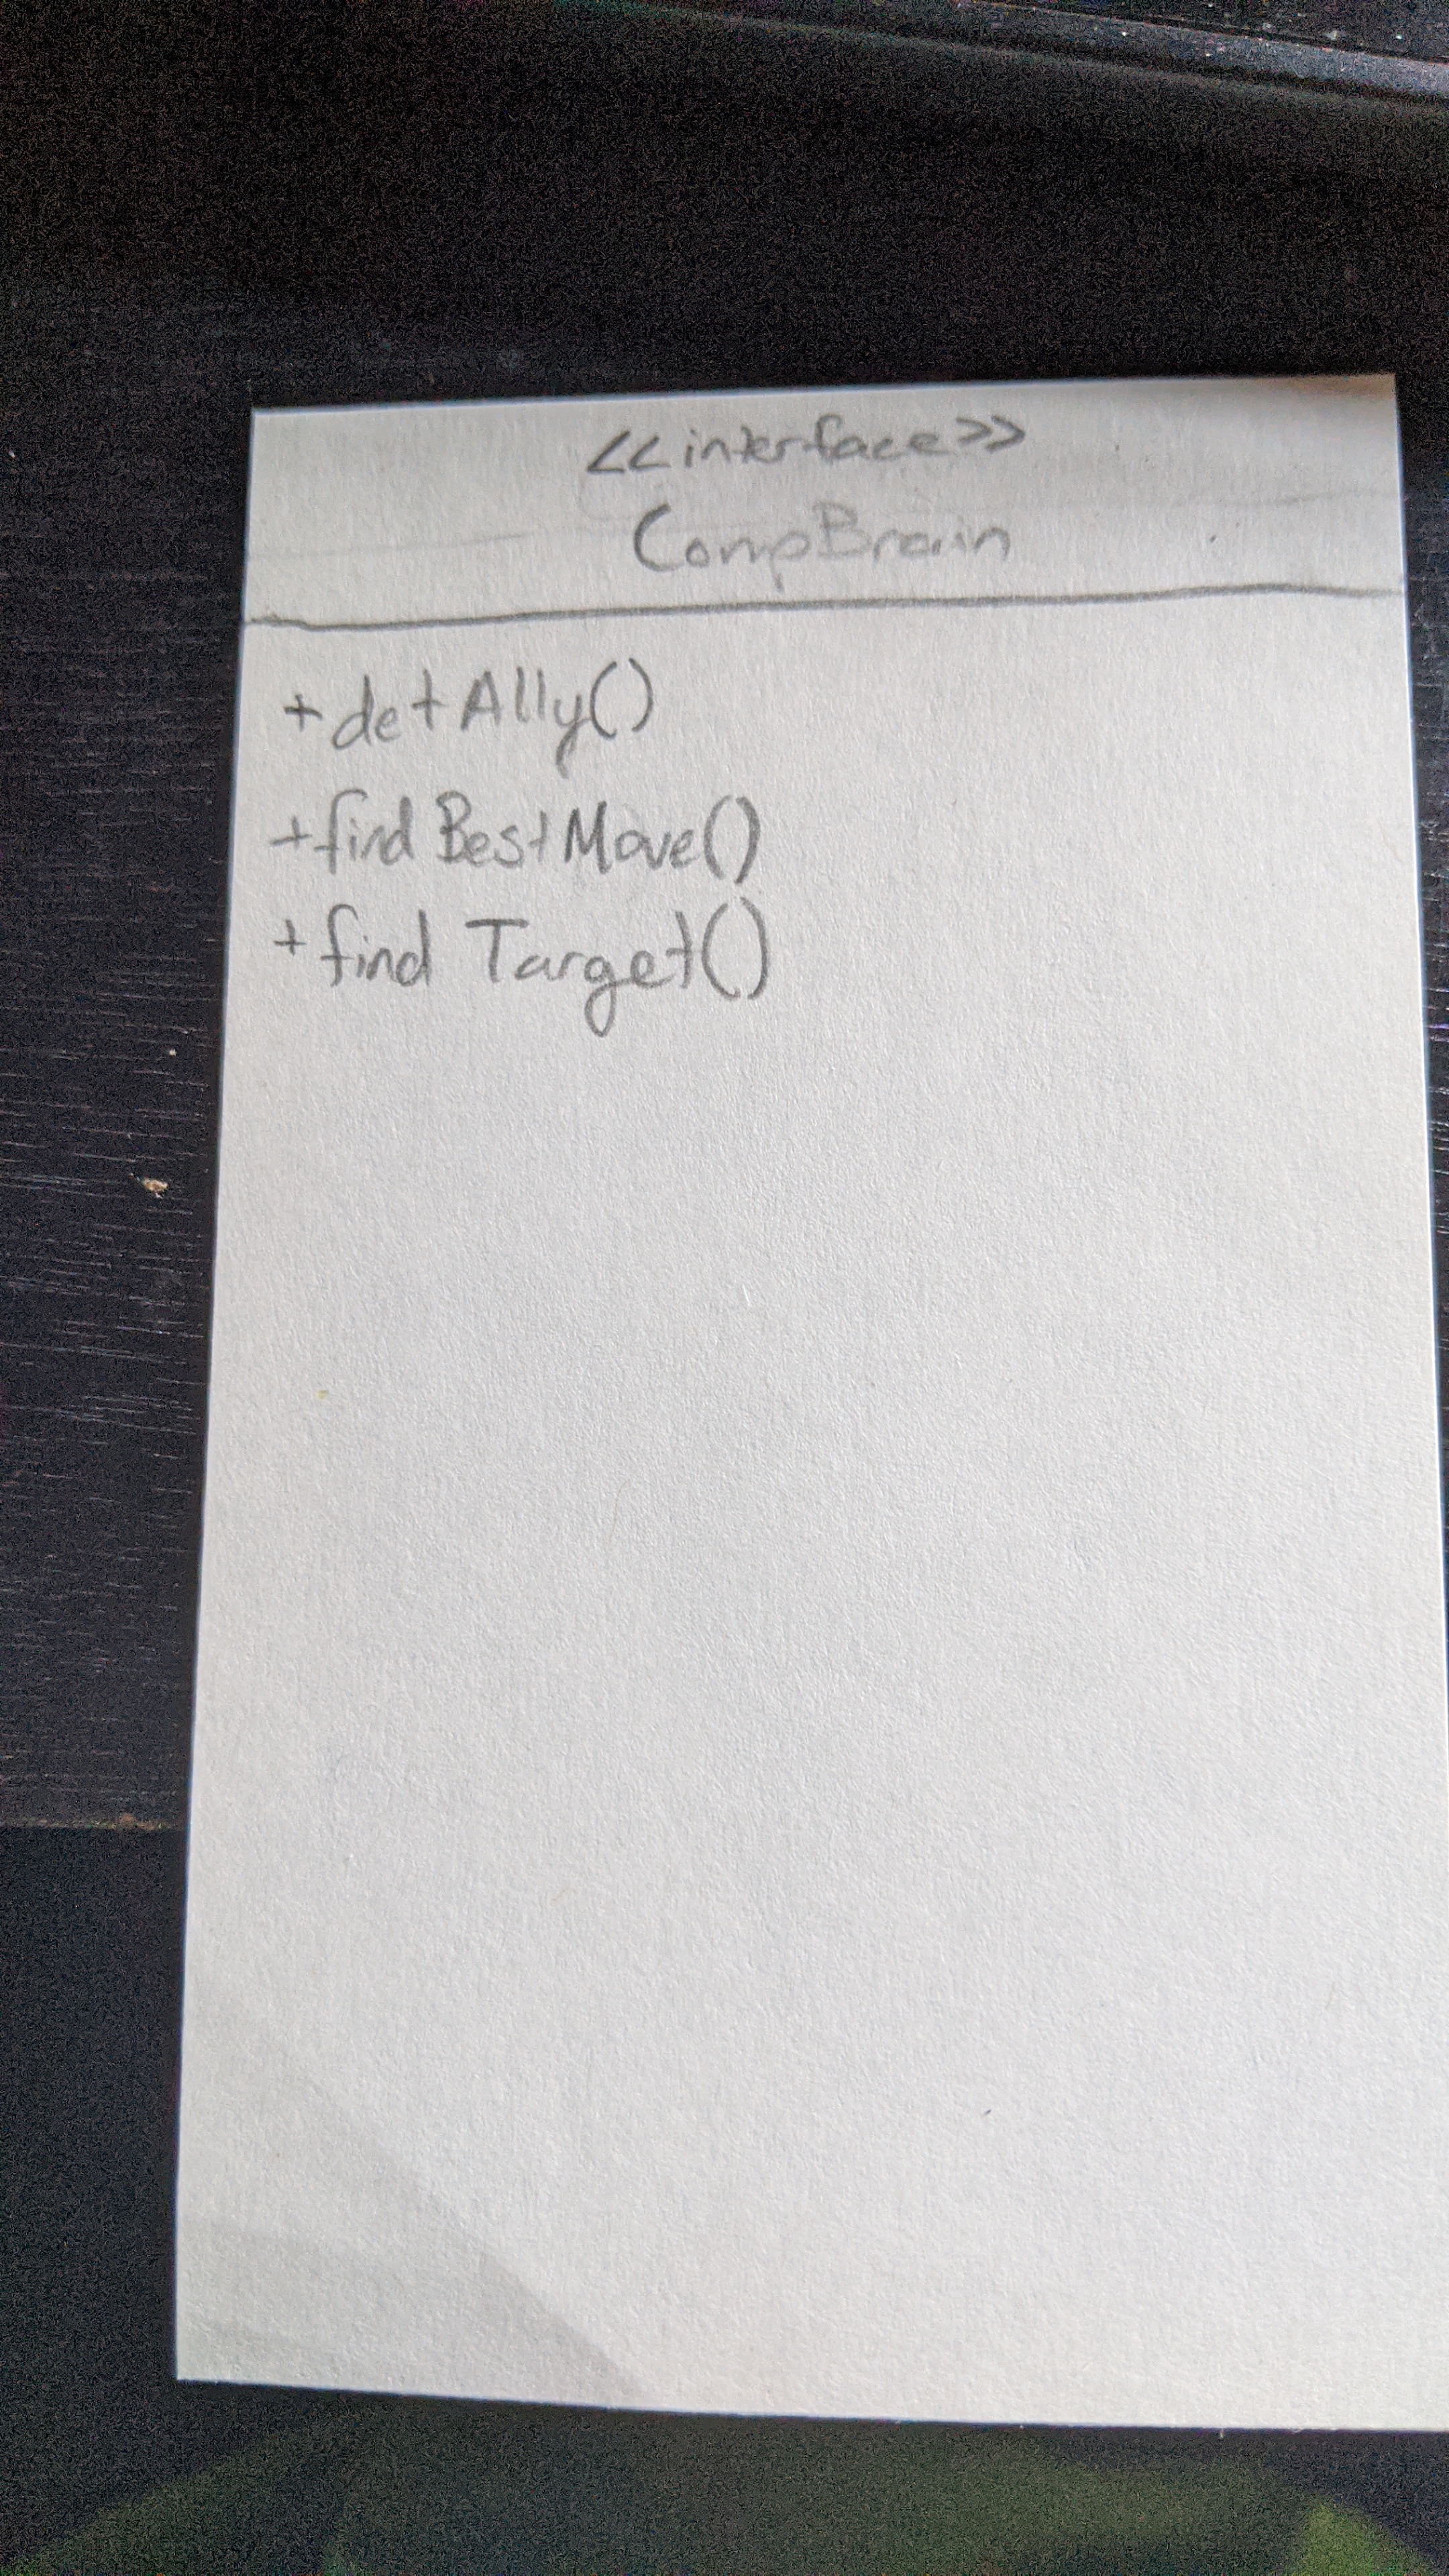 <<interface>>
CompBrain
+detAlly()
+findBestMove()
+find Target()